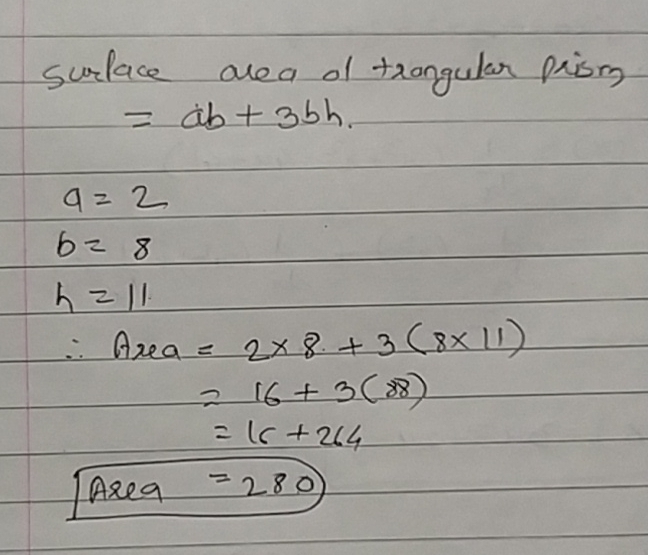 surface area of trangular prism
= ab + 3bh.
a = 2
b = 8
h = 11
∴ Area = 2 × 8 + 3 (8 × 11)
= 16 + 3 (88)
= 16 + 264
Area = 280